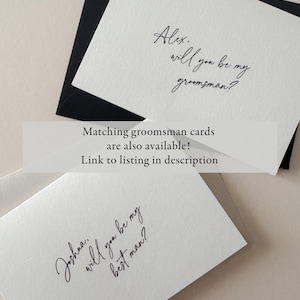 Alex,
will you be my
groomsman?
Matching groomsman cards
are also available!
Link to listing in description
Joshua,
will you be my
best man?